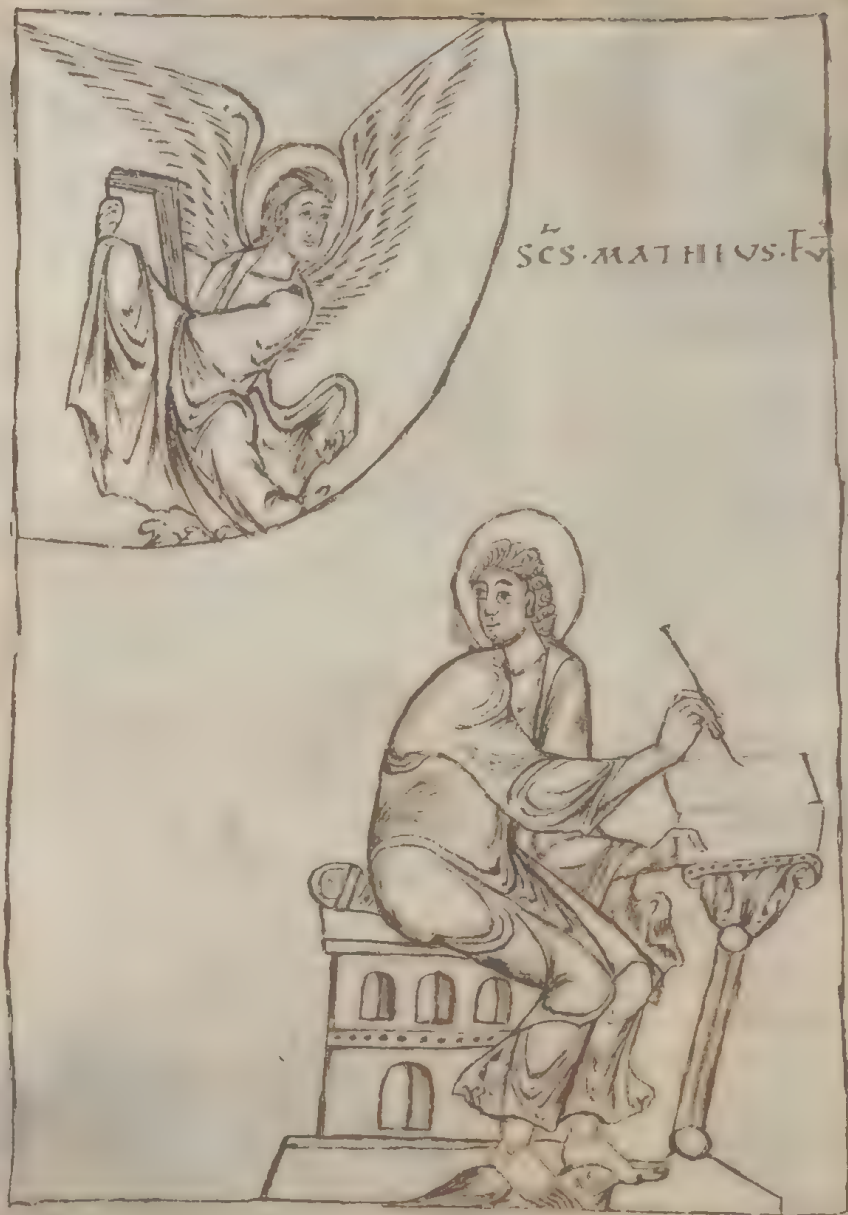 SC̄S·MATHIUS·EV̄